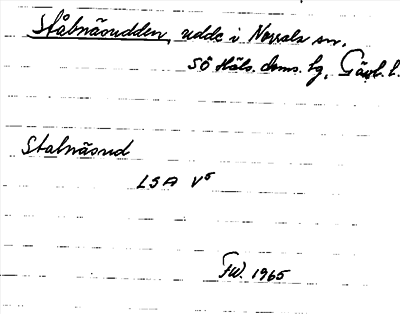 Stålnäsudden, udde i Norrala sn,
SÖ Häls. doms. hg, Gävl. l.
Stalnäsud
LSA V5
FW. 1965